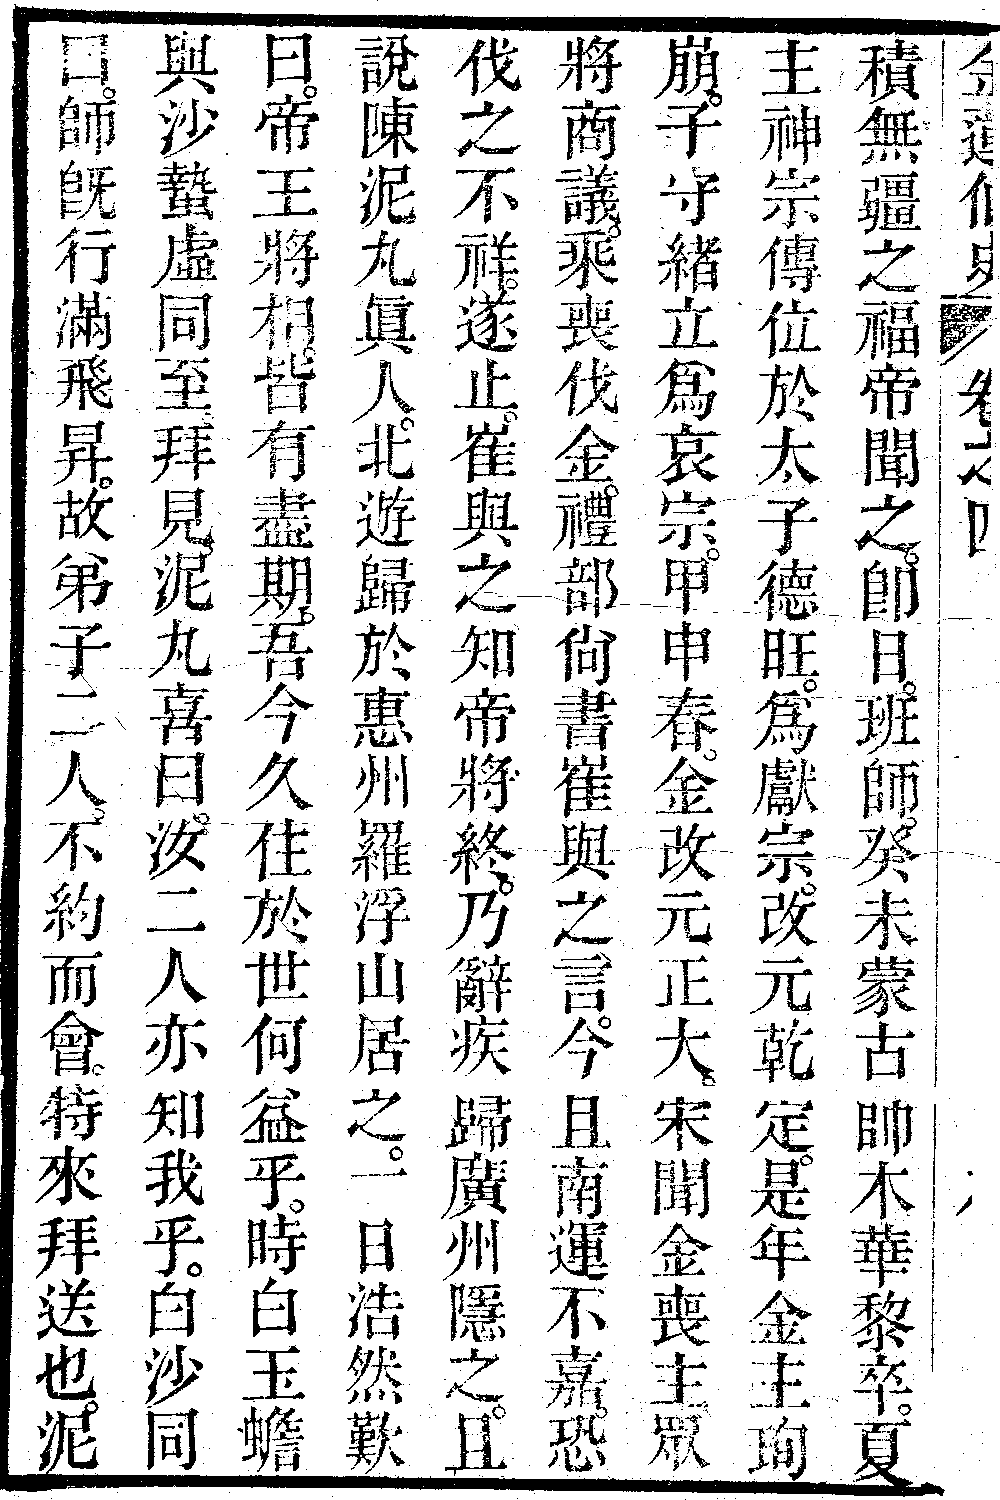 金蓮仙史 卷之四
積無疆之福帝聞之。卽日。班師。癸未蒙古帥木華黎卒。夏
主神宗傳位於太子德旺。爲獻宗。改元乾定。是年金主珣
崩。子守緒立爲哀宗。甲申春。金改元正大。宋聞金喪主。眾
將商議。乘喪伐金。禮部尙書崔與之言。今且南運不嘉。恐
伐之不祥。遂止。崔與之知帝將終。乃辭疾歸廣州隱之。且
說陳泥丸眞人。北遊歸於惠州羅浮山居之。一日浩然歎
曰。帝王將相。皆有盡期。吾今久住於世何益乎。時白玉蟾
與沙蟄虛同至。拜見。泥丸喜曰。汝二人亦知我乎。白沙同
曰。師旣行滿飛昇。故弟子二人。不約而會。特來拜送也。泥